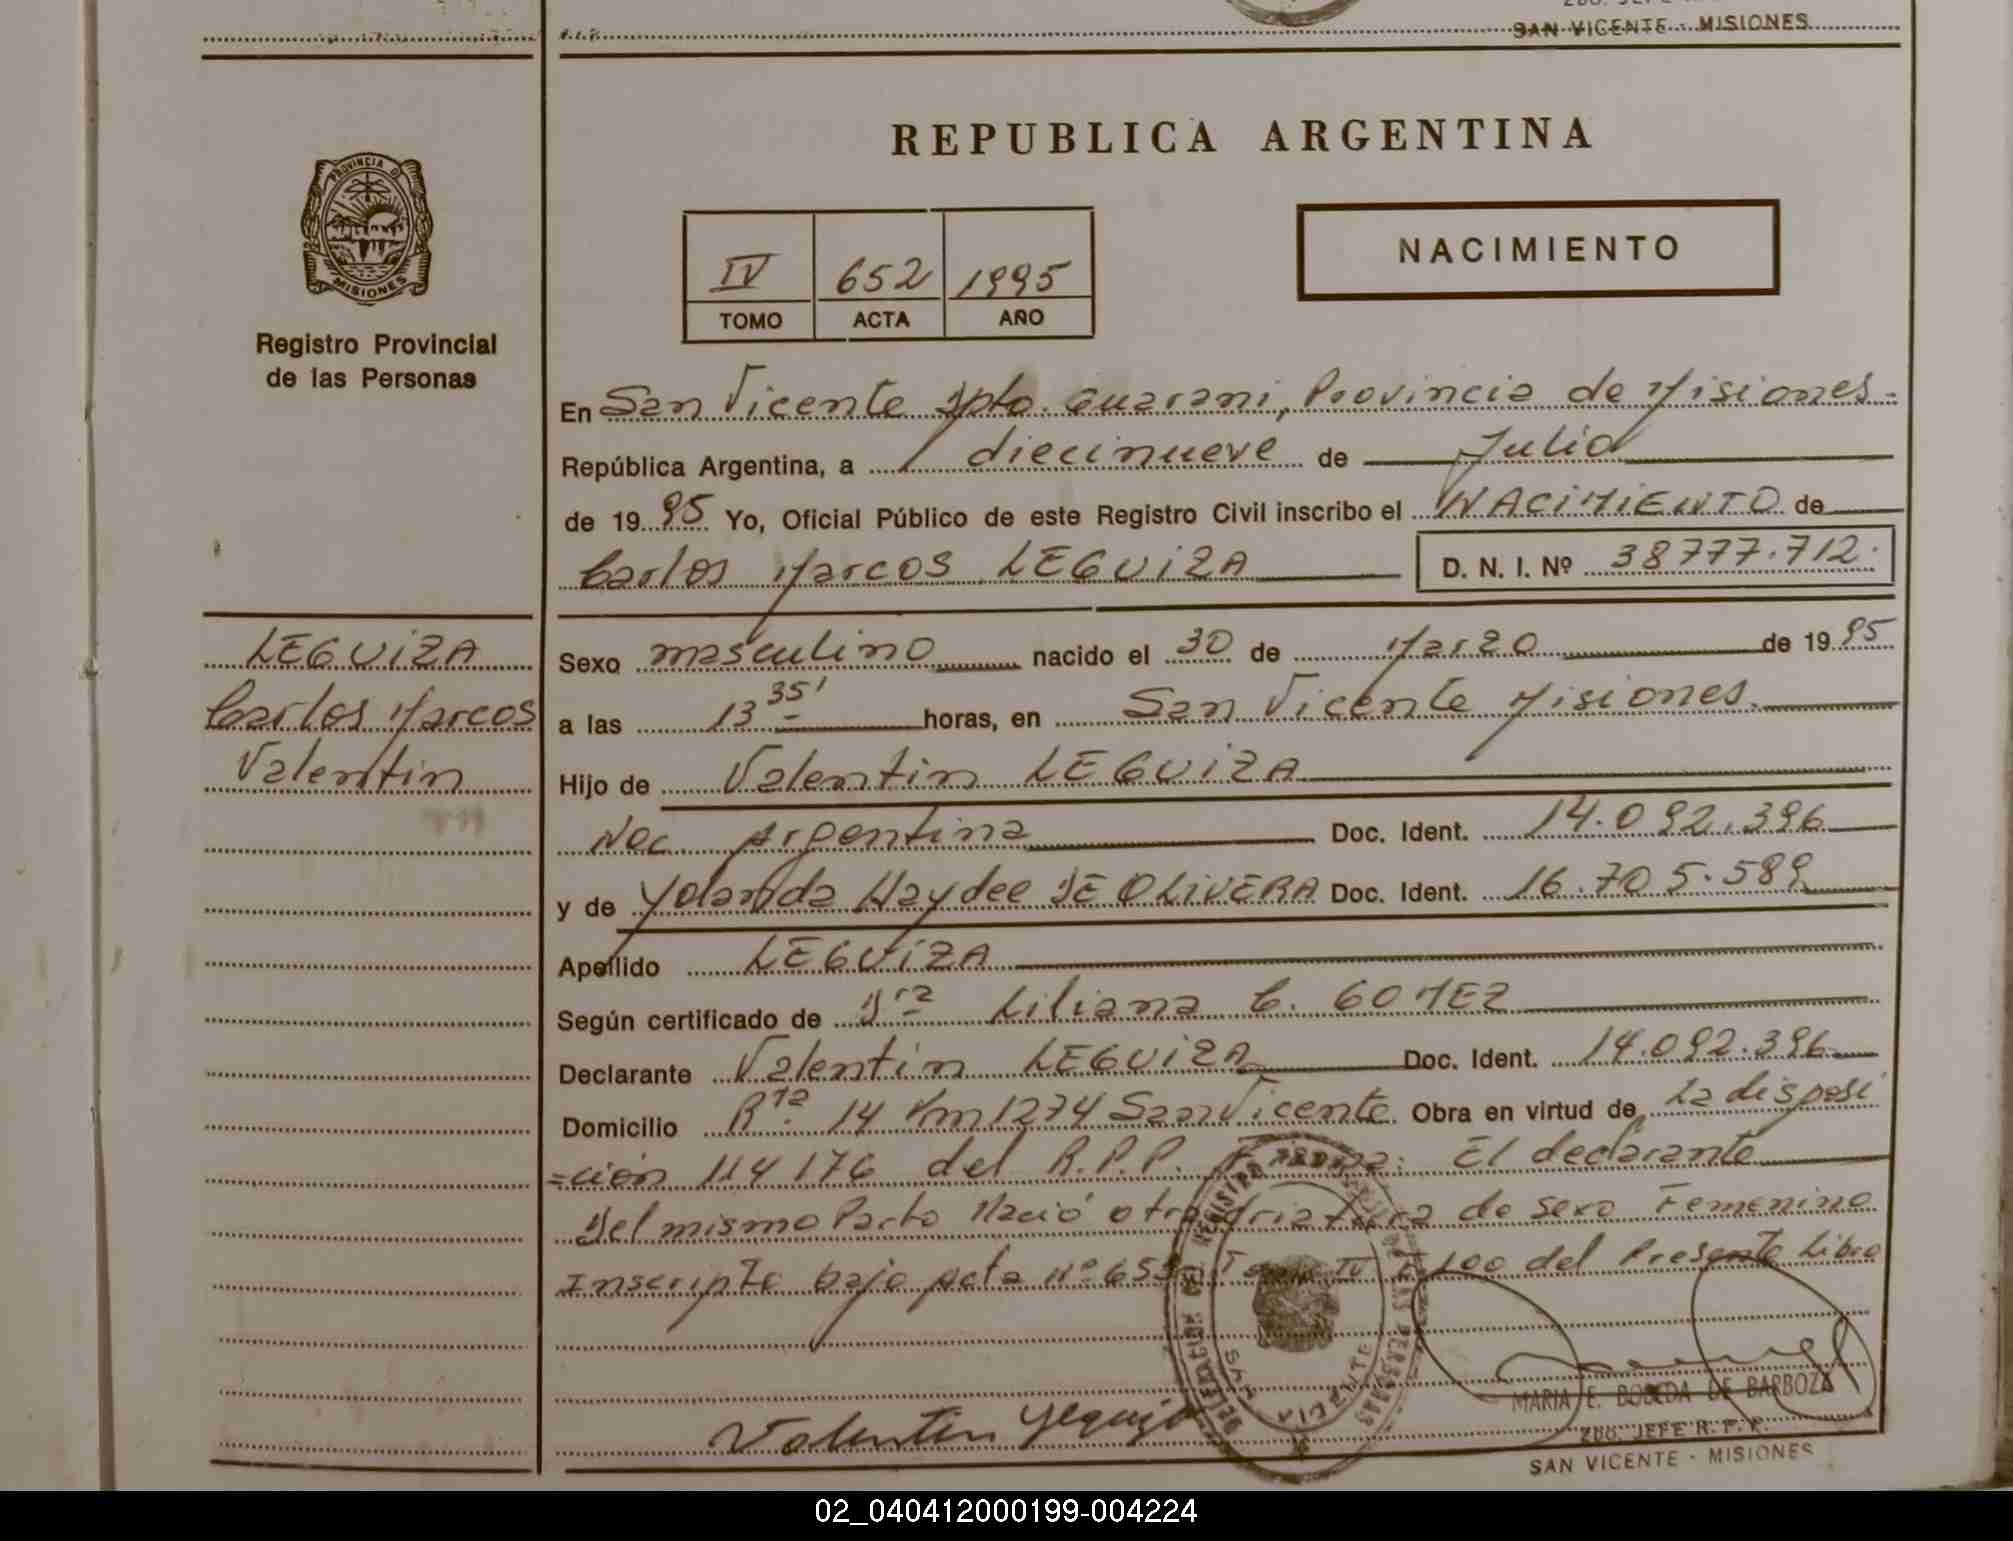 SAN VICENTE - MISIONES
REPUBLICA ARGENTINA
PROVINCIA DE
MISIONES
Registro Provincial
de las Personas
IV 652 1995
TOMO ACTA AÑO
NACIMIENTO
En San Vicente Dpto. Guarani, Provincia de Misiones.
República Argentina, a diecinueve de Julio
de 1995 Yo, Oficial Público de este Registro Civil inscribo el NACIMIENTO de
Carlos Marcos LEGUIZA D. N. I. Nº 38777.712.
LEGUIZA
Carlos Marcos
Valentin
Sexo masculino nacido el 30 de Marzo de 1995
a las 13 35' horas, en San Vicente Misiones.
Hijo de Valentin LEGUIZA
Nac Argentina Doc. Ident. 14.092.396
y de Yolanda Haydee DE OLIVERA Doc. Ident. 16.705.589
Apellido LEGUIZA
Según certificado de Dra Liliana C. GOMEZ
Declarante Valentin LEGUIZA Doc. Ident. 14.092.396
Domicilio Rta. 14 Km 1274 San Vicente Obra en virtud de La disposi
=ción 114176 del R.P.P. Firma: El declarante
Del mismo Parto Nació otra Criatura de sexo Femenino
Inscripta bajo Acta Nº 653 Tomo IV 100 del Presente Libro
Valentin Leguiza
DELEGACION DEL REGISTRO PROV. DE LAS PERSONAS
SAN VICENTE
MARIA E. BOBEDA DE BARBOZA
2DO. JEFE R. P. P.
SAN VICENTE - MISIONES
02_040412000199-004224